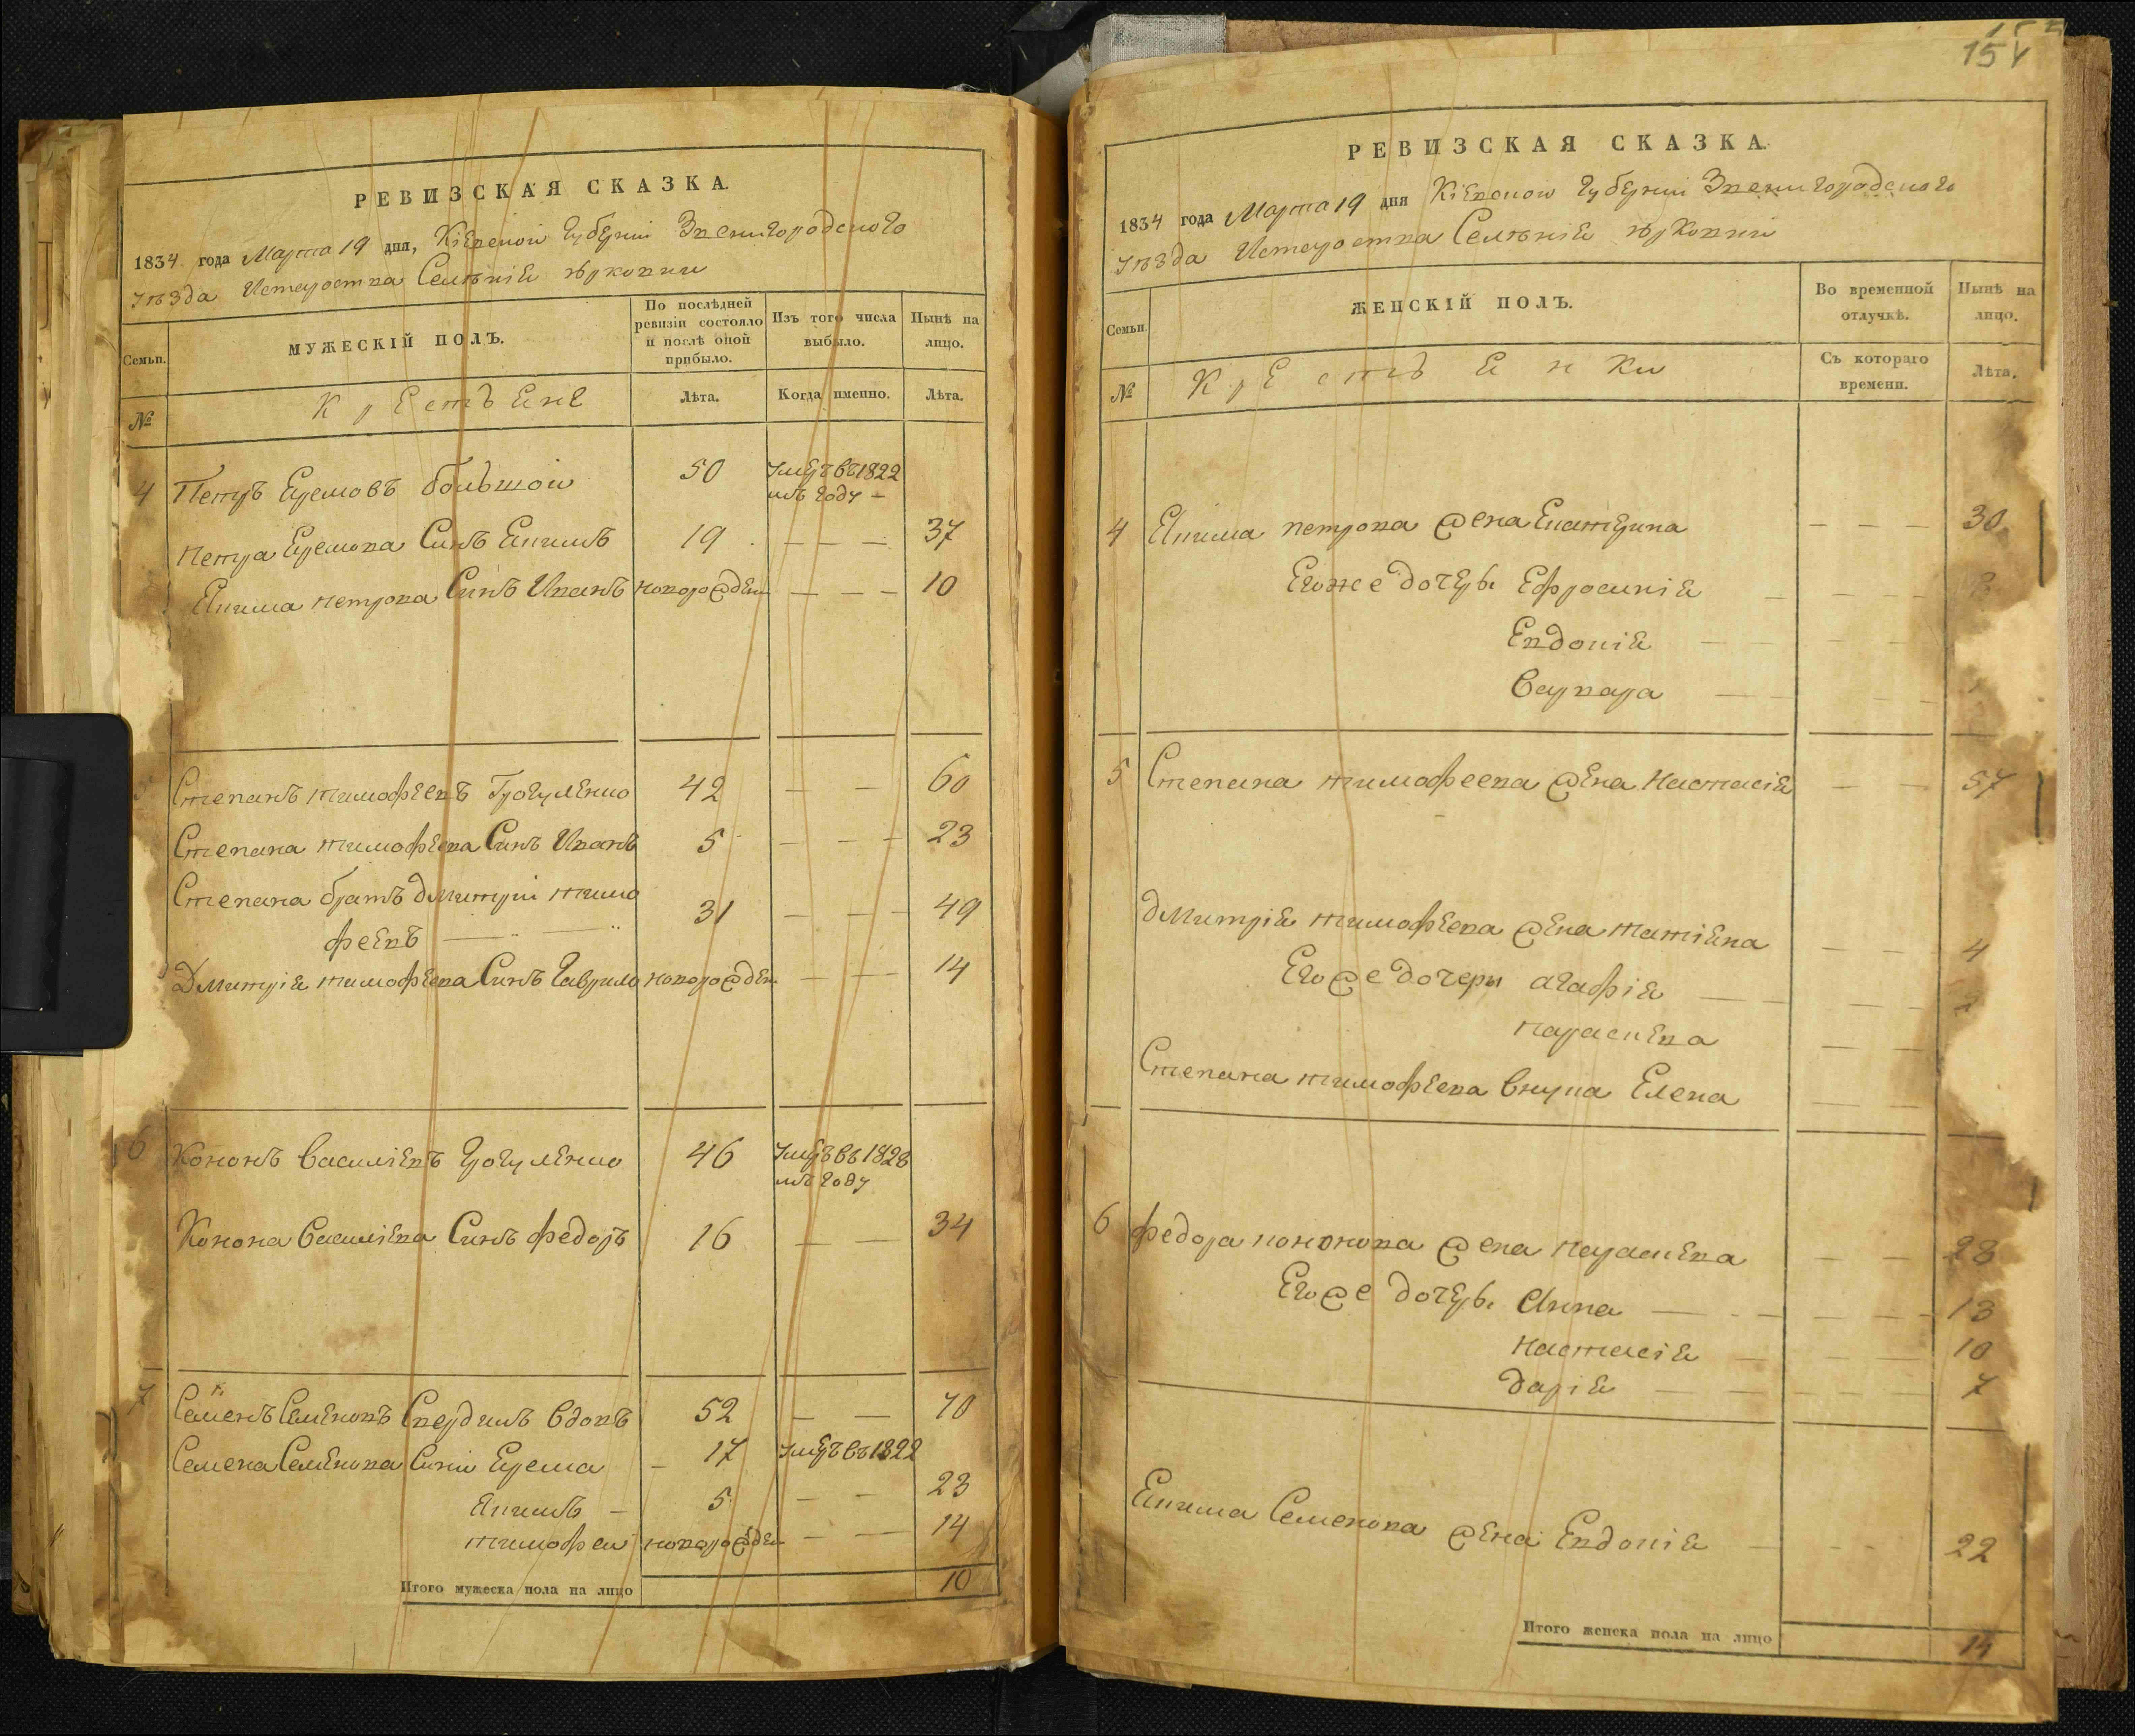 РЕВИЗСКАЯ СКАЗКА.
1834 года Марта 19 дня, Кіевской Губерніи Звенигородского
уѣзда Селѣнія
Семьи.
МУЖЕСКІЙ ПОЛЪ.
По послѣдней ревизіи состояло и послѣ оной прибыло.
Изъ того числа выбыло.
Нынѣ на лицо.
№
Крестьяне
Лѣта.
Когда именно.
Лѣта.
4 Петръ Еремовъ большой 50 умеръ въ 1822
мъ году —
Петра Еремова Синъ Екимъ 19 — — — 37
Екима петрова Синъ Иванъ новорожден — — — 10
5 Степанъ тимофеевъ Грогуленко 42 — — 60
Степана тимофеева Синъ Иванъ 5 — — — 23
Степана братъ дмитрій тимо
феевъ — — 31 — — — 49
Дмитрія тимофеева Синъ Гаврило новорожден — — 14
6 Кононъ василіевъ Грогуленко 46 умеръ въ 1828
мъ году
Конона василіева Синъ федоръ 16 — — 34
7 Семенъ Семеновъ вдовъ 52 — — 70
Семена Семенова Сини Ерема — 17 умеръ въ 1822
Екимъ — 5 — — 23
тимофей новорожден — — 14
Итого мужеска пола на лицо 10
154
РЕВИЗСКАЯ СКАЗКА.
1834 года Марта 19 дня Кіевской Губерніи Звенигородского
уѣзда Селѣнія
Семьи.
ЖЕНСКІЙ ПОЛЪ.
Во временной отлучкѣ.
Нынѣ на лицо.
№
Крестьянки
Съ котораго времени.
Лѣта.
4 Екима петрова жена Екатерина — — — 30
Егоже дочерѣ Ефросинія — — — —
Евдокія — —
Варвара — —
5 Степана тимофеева жена Настасія — — 57
дмитрія тимофеева жена татіяна — — 4
Егоже дочеры агафія — — — —
параскева — —
Степана тимофеева внука Елена — —
6 федора кононова жена параскева — — 28
Егоже дочерѣ Анна — — — — — 13
настасія — — — 10
дарія — — — 7
Екима Семенова жена Евдокія — — — 22
Итого женска пола на лицо 14